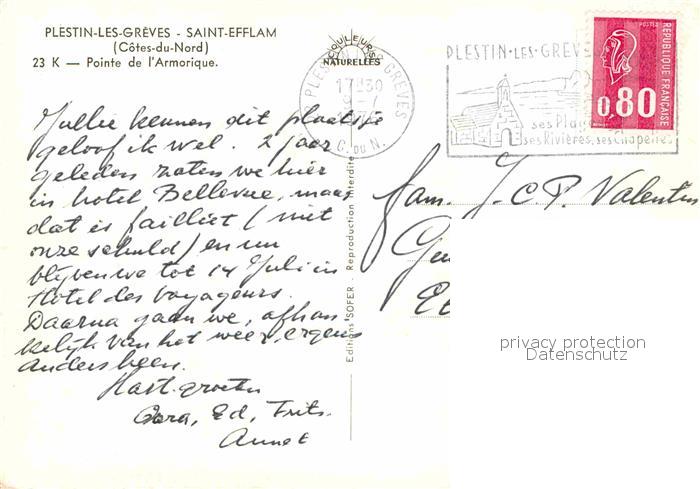 PLESTIN-LES-GRÈVES - SAINT-EFFLAM
(Côtes-du-Nord)
23 K — Pointe de l'Armorique.
COULEURS
NATURELLES
Jullie kennen dit plaatsje
geloof ik wel. 2 jaar
geleden zaten we hier
in hotel Bellevue, maar
dat is failliet (niet
onze schuld) en nu
blijven we tot 14 Juli in
Hotel des Voyageurs.
Daarna gaan we, afhan
kelijk van het weer, ergens
anders heen.
Hart. groeten
Ed, Frits.
Annet
Editions SOFER. Reproduction interdite
PLESTIN GRÈVES
17H30
C. DU N.
PLESTIN-LES-GREVES
ses Plag
ses Rivières, ses Chapelles
POSTES
REPUBLIQUE FRANÇAISE
0,80
fam. J.C.P. Valentin
privacy protection
Datenschutz